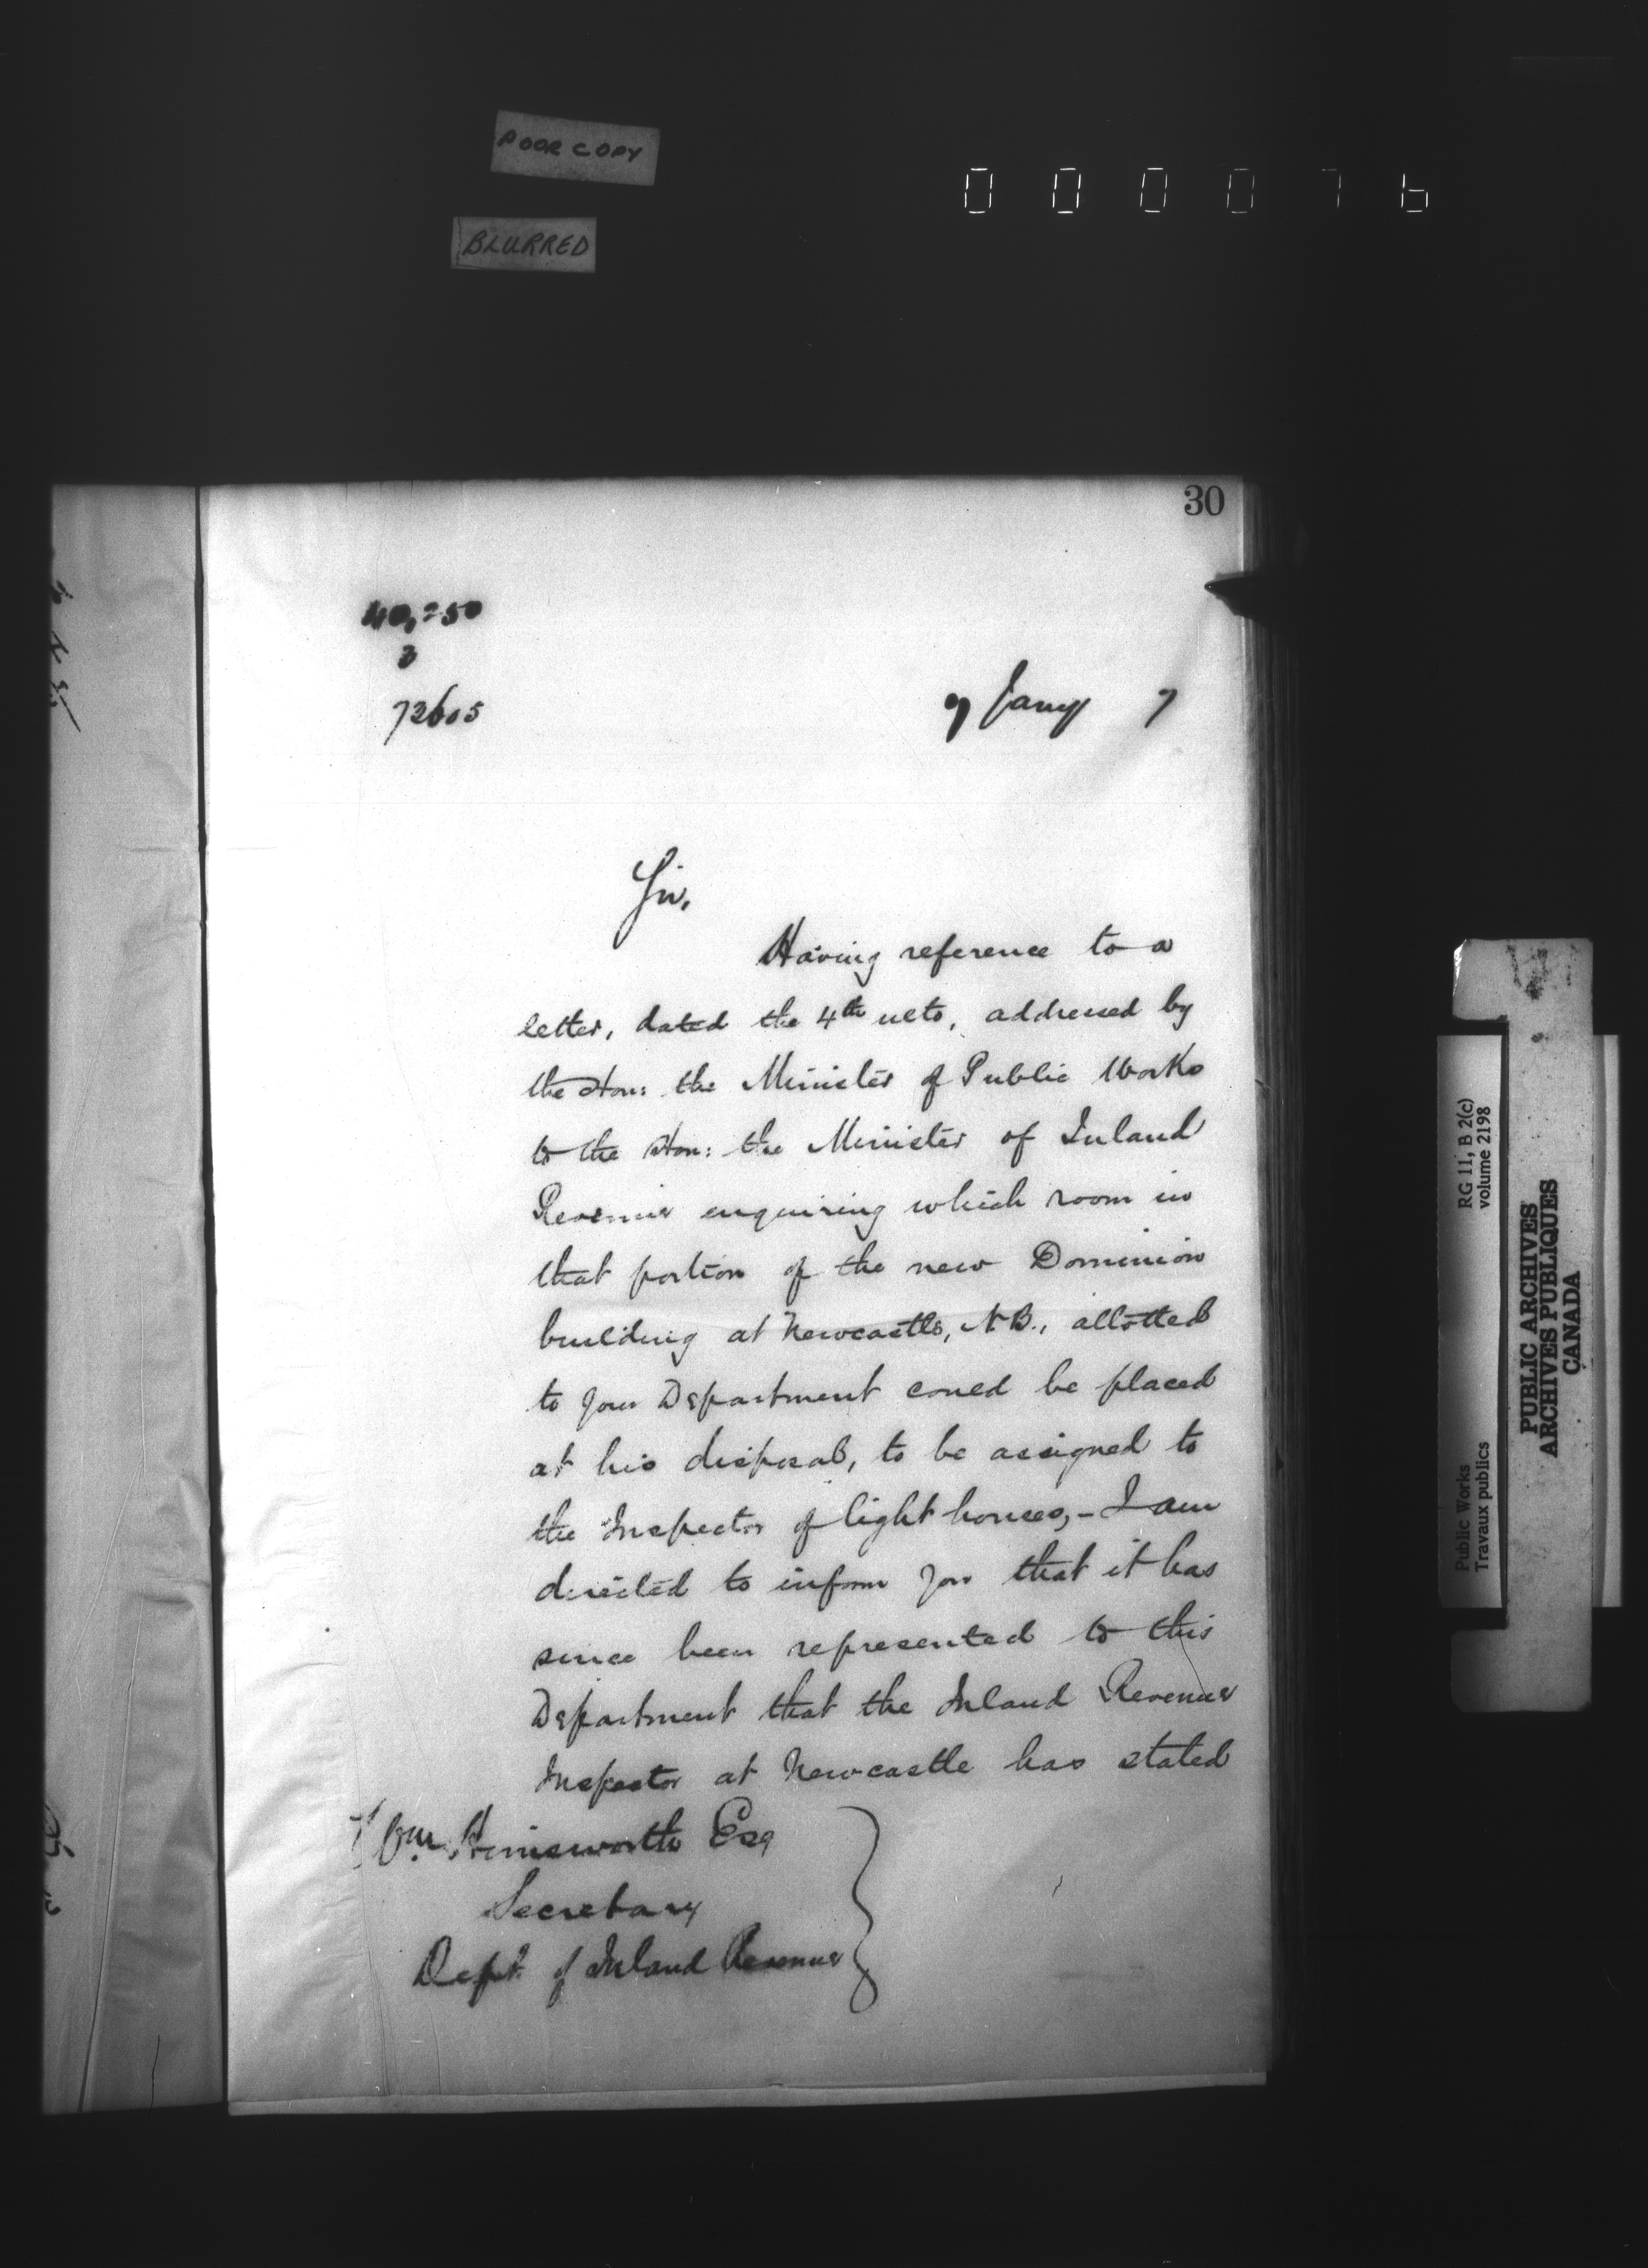 POOR COPY
BLURRED
0 0 0 0 7 6
30
72605
7 Jany 7
Sir,
Having reference to a
letter, dated the 4th ulto, addressed by
the Hon: the Minister of Public Works
to the Hon: the Minister of Inland
Revenue enquiring which room in
that portion of the new Dominion
building at Newcastle, N.B., allotted
to your Department could be placed
at his disposal, to be assigned to
the Inspector of light houses, – I am
directed to inform you that it has
since been represented to this
Department that the Inland Revenue
Inspector at Newcastle has stated
Wm Himsworth Esq
Secretary
Dept. of Inland Revenue
Public Works
Travaux publics
RG 11, B 2(c)
volume 2198
PUBLIC ARCHIVES
ARCHIVES PUBLIQUES
CANADA